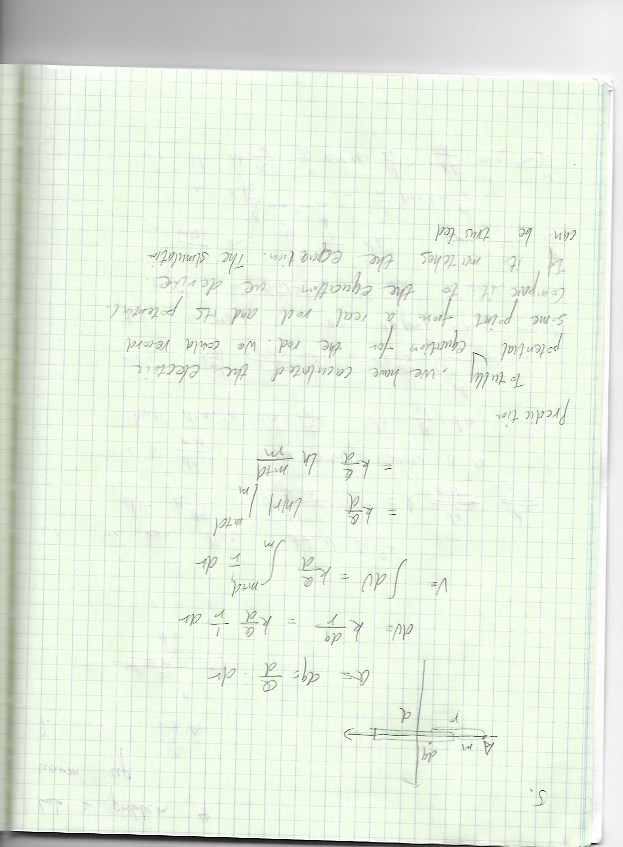 5.
A m dq
r d
Q = dq = Q/d · dr
dV = k dq/r = k Q/d 1/r dr
V = ∫ dV = k Q/d ∫_m^{m+d} 1/r dr
= k Q/d ln|r| |_m^{m+d}
= k Q/d ln (m+d)/m
Prediction
Totully, we have caculated the electric
potential equation for the rod. we could record
some point from a real rod and its potential.
Compare it to the equation we derive.
If it matches the equation. The simulation
can be trusted